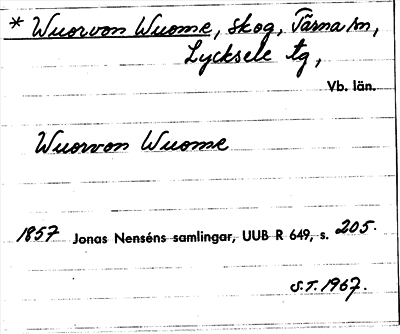 * Wuorvon Wuome, skog, Tärna sn,
Lycksele tg,
Vb. län.
Wuorvon Wuome
1857 Jonas Nenséns samlingar, UUB R 649, s. 205.
S.T. 1967.